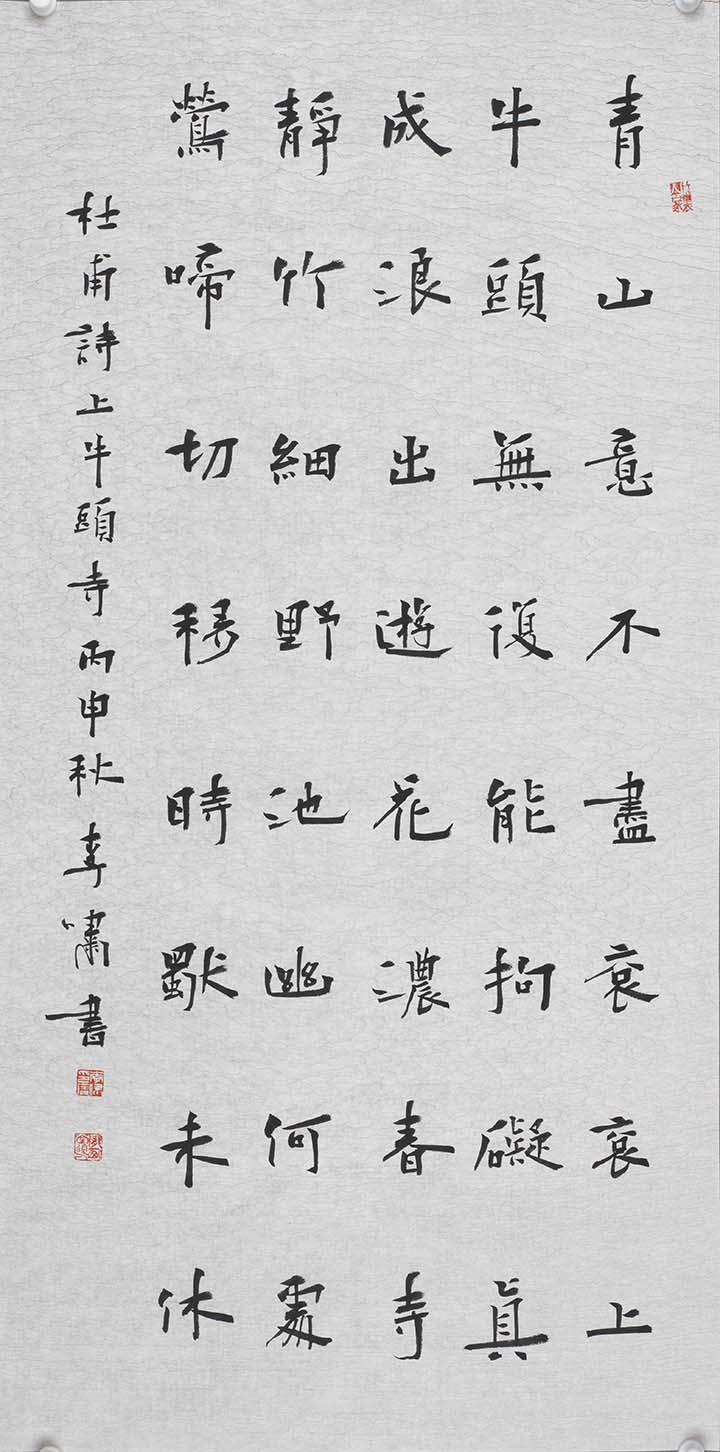 青山意不盡袞袞上
牛頭無復能拘礙眞
成浪出遊花濃春寺
靜竹細野池幽何處
鶯啼切移時獨未休
杜甫詩上牛頭寺丙申秋李嘯書